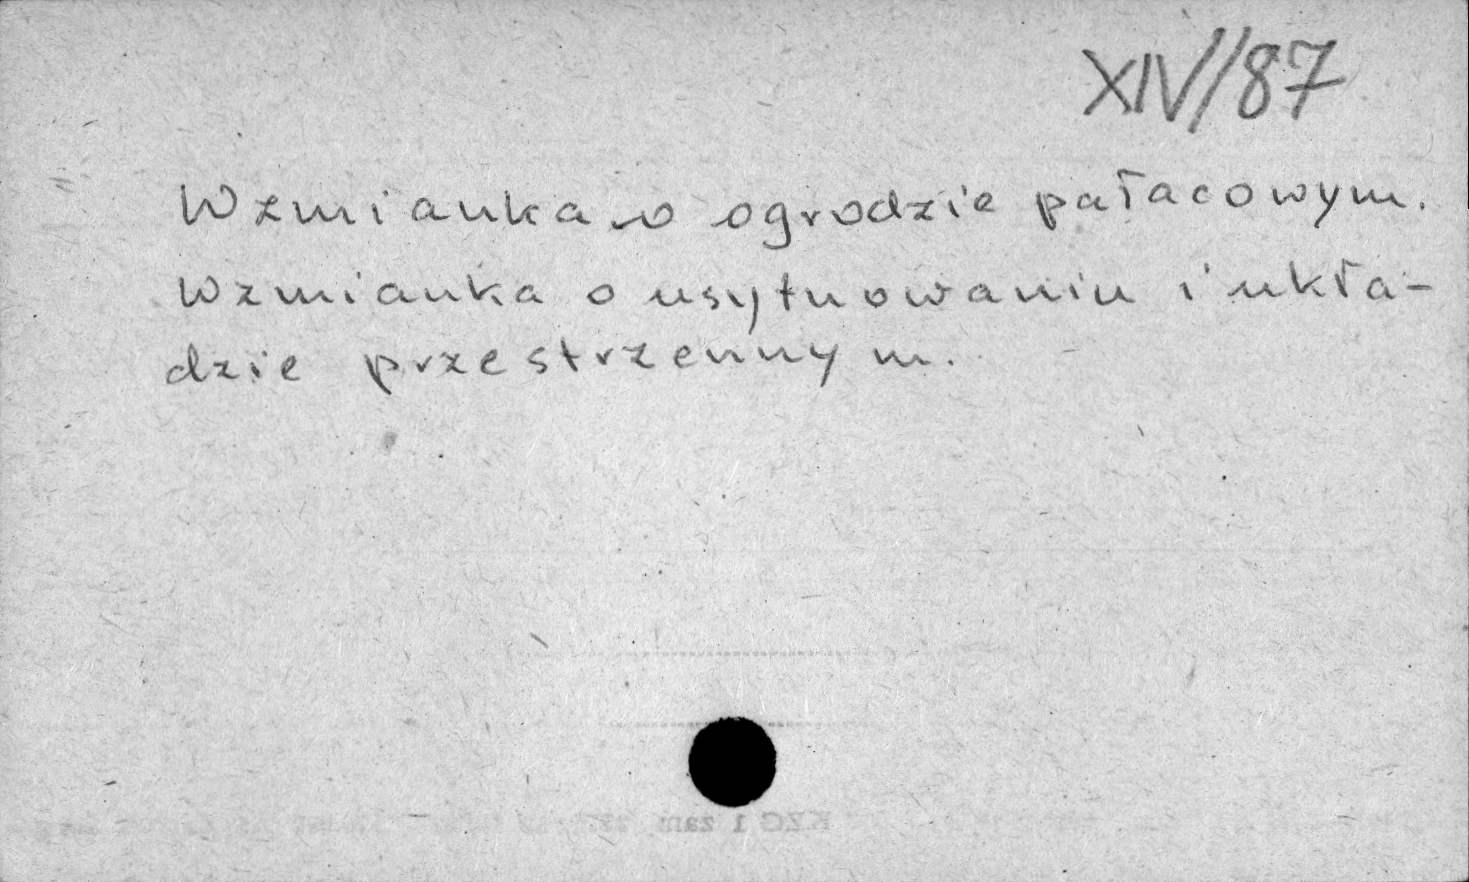 XIV//87
Wzmianka o ogrodzie pałacowym.
Wzmianka o usytuowaniu i ukła-
dzie przestrzennym.
KZG 1 zam